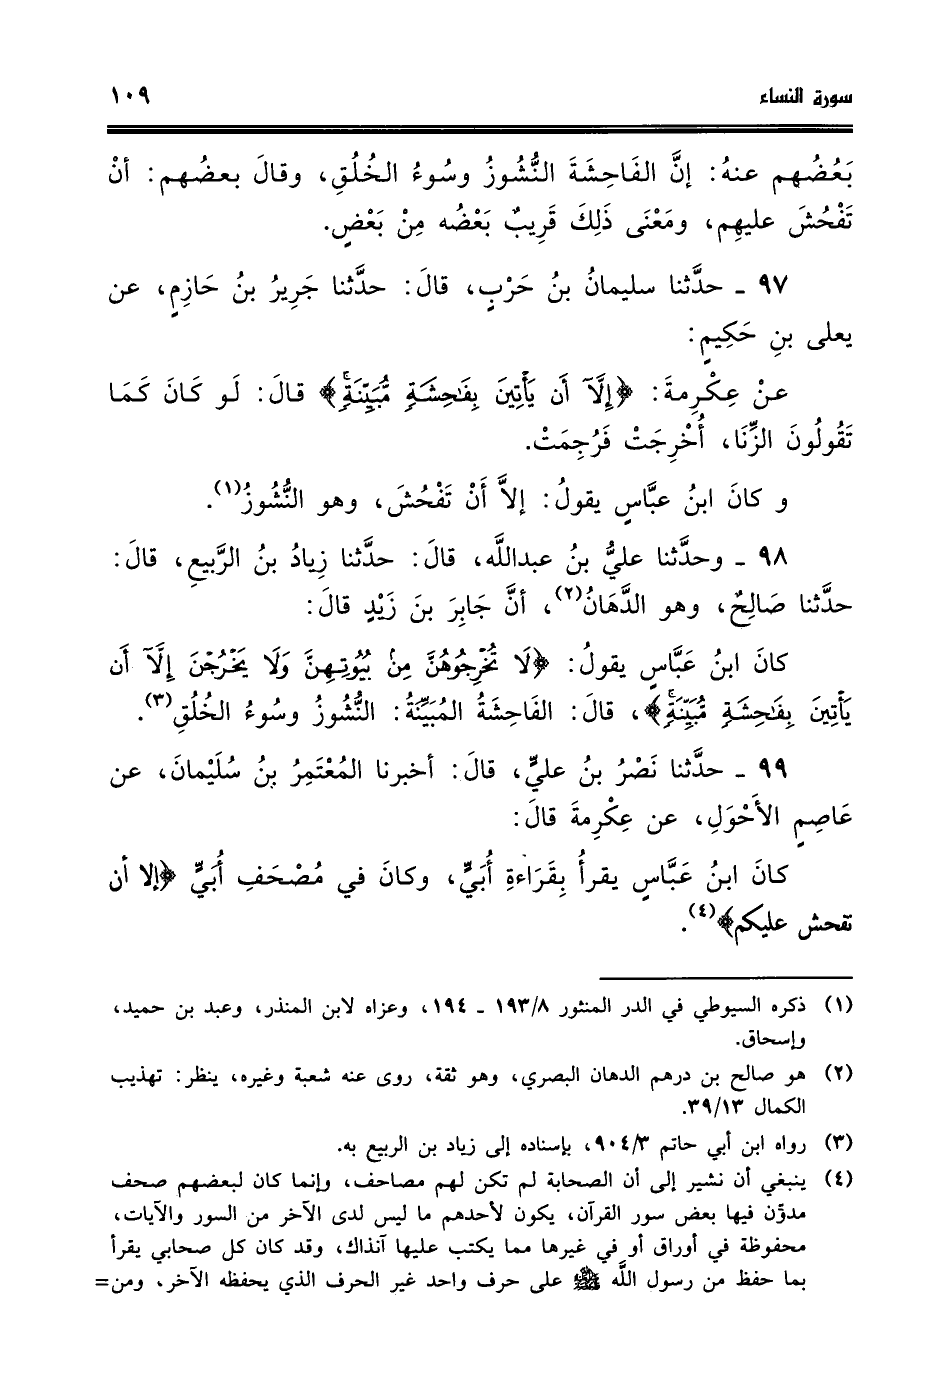 سورة النساء ١٠٩
بَعُضُهم عنهُ: إنَّ الفَاحِشَةَ النُّشُوزُ وسُوءُ الخُلُقِ، وقالَ بعضُهم: أنْ
تَفْحُشَ عليهِم، ومَعْنَى ذَلِكَ قَرِيبٌ بَعْضُه مِنْ بَعْضٍ.
٩٧ ـ حدَّثنا سليمانُ بنُ حَرْبٍ، قالَ: حدَّثنا جَرِيرُ بنُ حَازِمٍ، عن
يعلى بنِ حَكِيمٍ:
عنْ عِكْرِمةَ: ﴿إِلَّآ أَن يَأْتِينَ بِفَٰحِشَةٍ مُّبَيِّنَةٍۚ﴾ قالَ: لَو كَانَ كَمَا
تَقُولُونَ الزِّنَا، أُخْرِجَتْ فَرُجِمَتْ.
و كانَ ابنُ عبَّاسٍ يقولُ: إلاَّ أَنْ تَفْحُشَ، وهو النُّشُوزُ(١).
٩٨ ـ وحدَّثنا عليُّ بنُ عبدالله، قالَ: حدَّثنا زِيادُ بنُ الرَّبيعِ، قالَ:
حدَّثنا صَالِحٌ، وهو الدَّهَانُ(٢)، أنَّ جَابِرَ بنَ زَيْدٍ قالَ:
كانَ ابنُ عَبَّاسٍ يقولُ: ﴿لَا تُخْرِجُوهُنَّ مِنۢ بُيُوتِهِنَّ وَلَا يَخْرُجْنَ إِلَّآ أَن
يَأْتِينَ بِفَٰحِشَةٍ مُّبَيِّنَةٍۚ﴾، قالَ: الفَاحِشَةُ المُبَيِّنَةُ: النُّشُوزُ وسُوءُ الخُلُقِ(٣).
٩٩ ـ حدَّثنا نَصْرُ بنُ عليٍّ، قالَ: أخبرنا المُعْتَمِرُ بنُ سُلَيْمانَ، عن
عَاصِمٍ الأَحْوَلِ، عن عِكْرِمةَ قالَ:
كانَ ابنُ عَبَّاسٍ يقرأُ بِقَرَاءةِ أُبَيٍّ، وكانَ في مُصْحَفِ أُبَيٍّ ﴿إلا أن
تفحش عليكم﴾(٤).
(١) ذكره السيوطي في الدر المنثور ١٩٣/٨ ـ ١٩٤، وعزاه لابن المنذر، وعبد بن حميد،
وإسحاق.
(٢) هو صالح بن درهم الدهان البصري، وهو ثقة، روى عنه شعبة وغيره، ينظر: تهذيب
الكمال ٣٩/١٣.
(٣) رواه ابن أبي حاتم ٩٠٤/٣، بإسناده إلى زياد بن الربيع به.
(٤) ينبغي أن نشير إلى أن الصحابة لم تكن لهم مصاحف، وإنما كان لبعضهم صحف
مدوَّن فيها بعض سور القرآن، يكون لأحدهم ما ليس لدى الآخر من السور والآيات،
محفوظة في أوراق أو في غيرها مما يكتب عليها آنذاك، وقد كان كل صحابي يقرأ
بما حفظ من رسول الله ﷺ على حرف واحد غير الحرف الذي يحفظه الآخر، ومن=